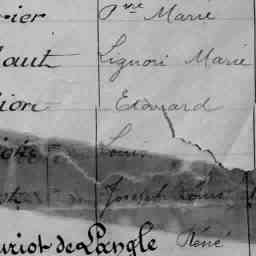 rier Vve Marie
haut Liguori Marie
lion Edouard
Louis
Joseph Louis
uriot de Langle Réné